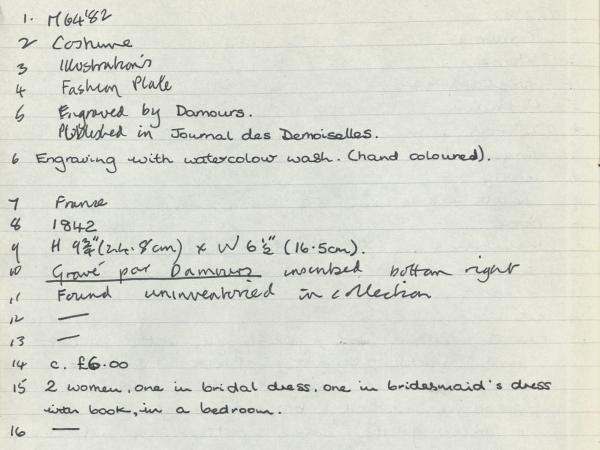 1. M64'82
2 Costume
3 Illustrations
4 Fashion Plate
5 Engraved by Damours.
Published in Journal des Demoiselles.
6 Engraving with watercolour wash. (hand coloured).
7 France
8 1842
9 H 9¾" (24.8cm) x W 6½" (16.5cm).
10 Gravé par Damours inscribed bottom right
11 Found uninventoried in collection
12 —
13 —
14 c. £6.00
15 2 women, one in bridal dress, one in bridesmaid's dress
with book, in a bedroom.
16 —